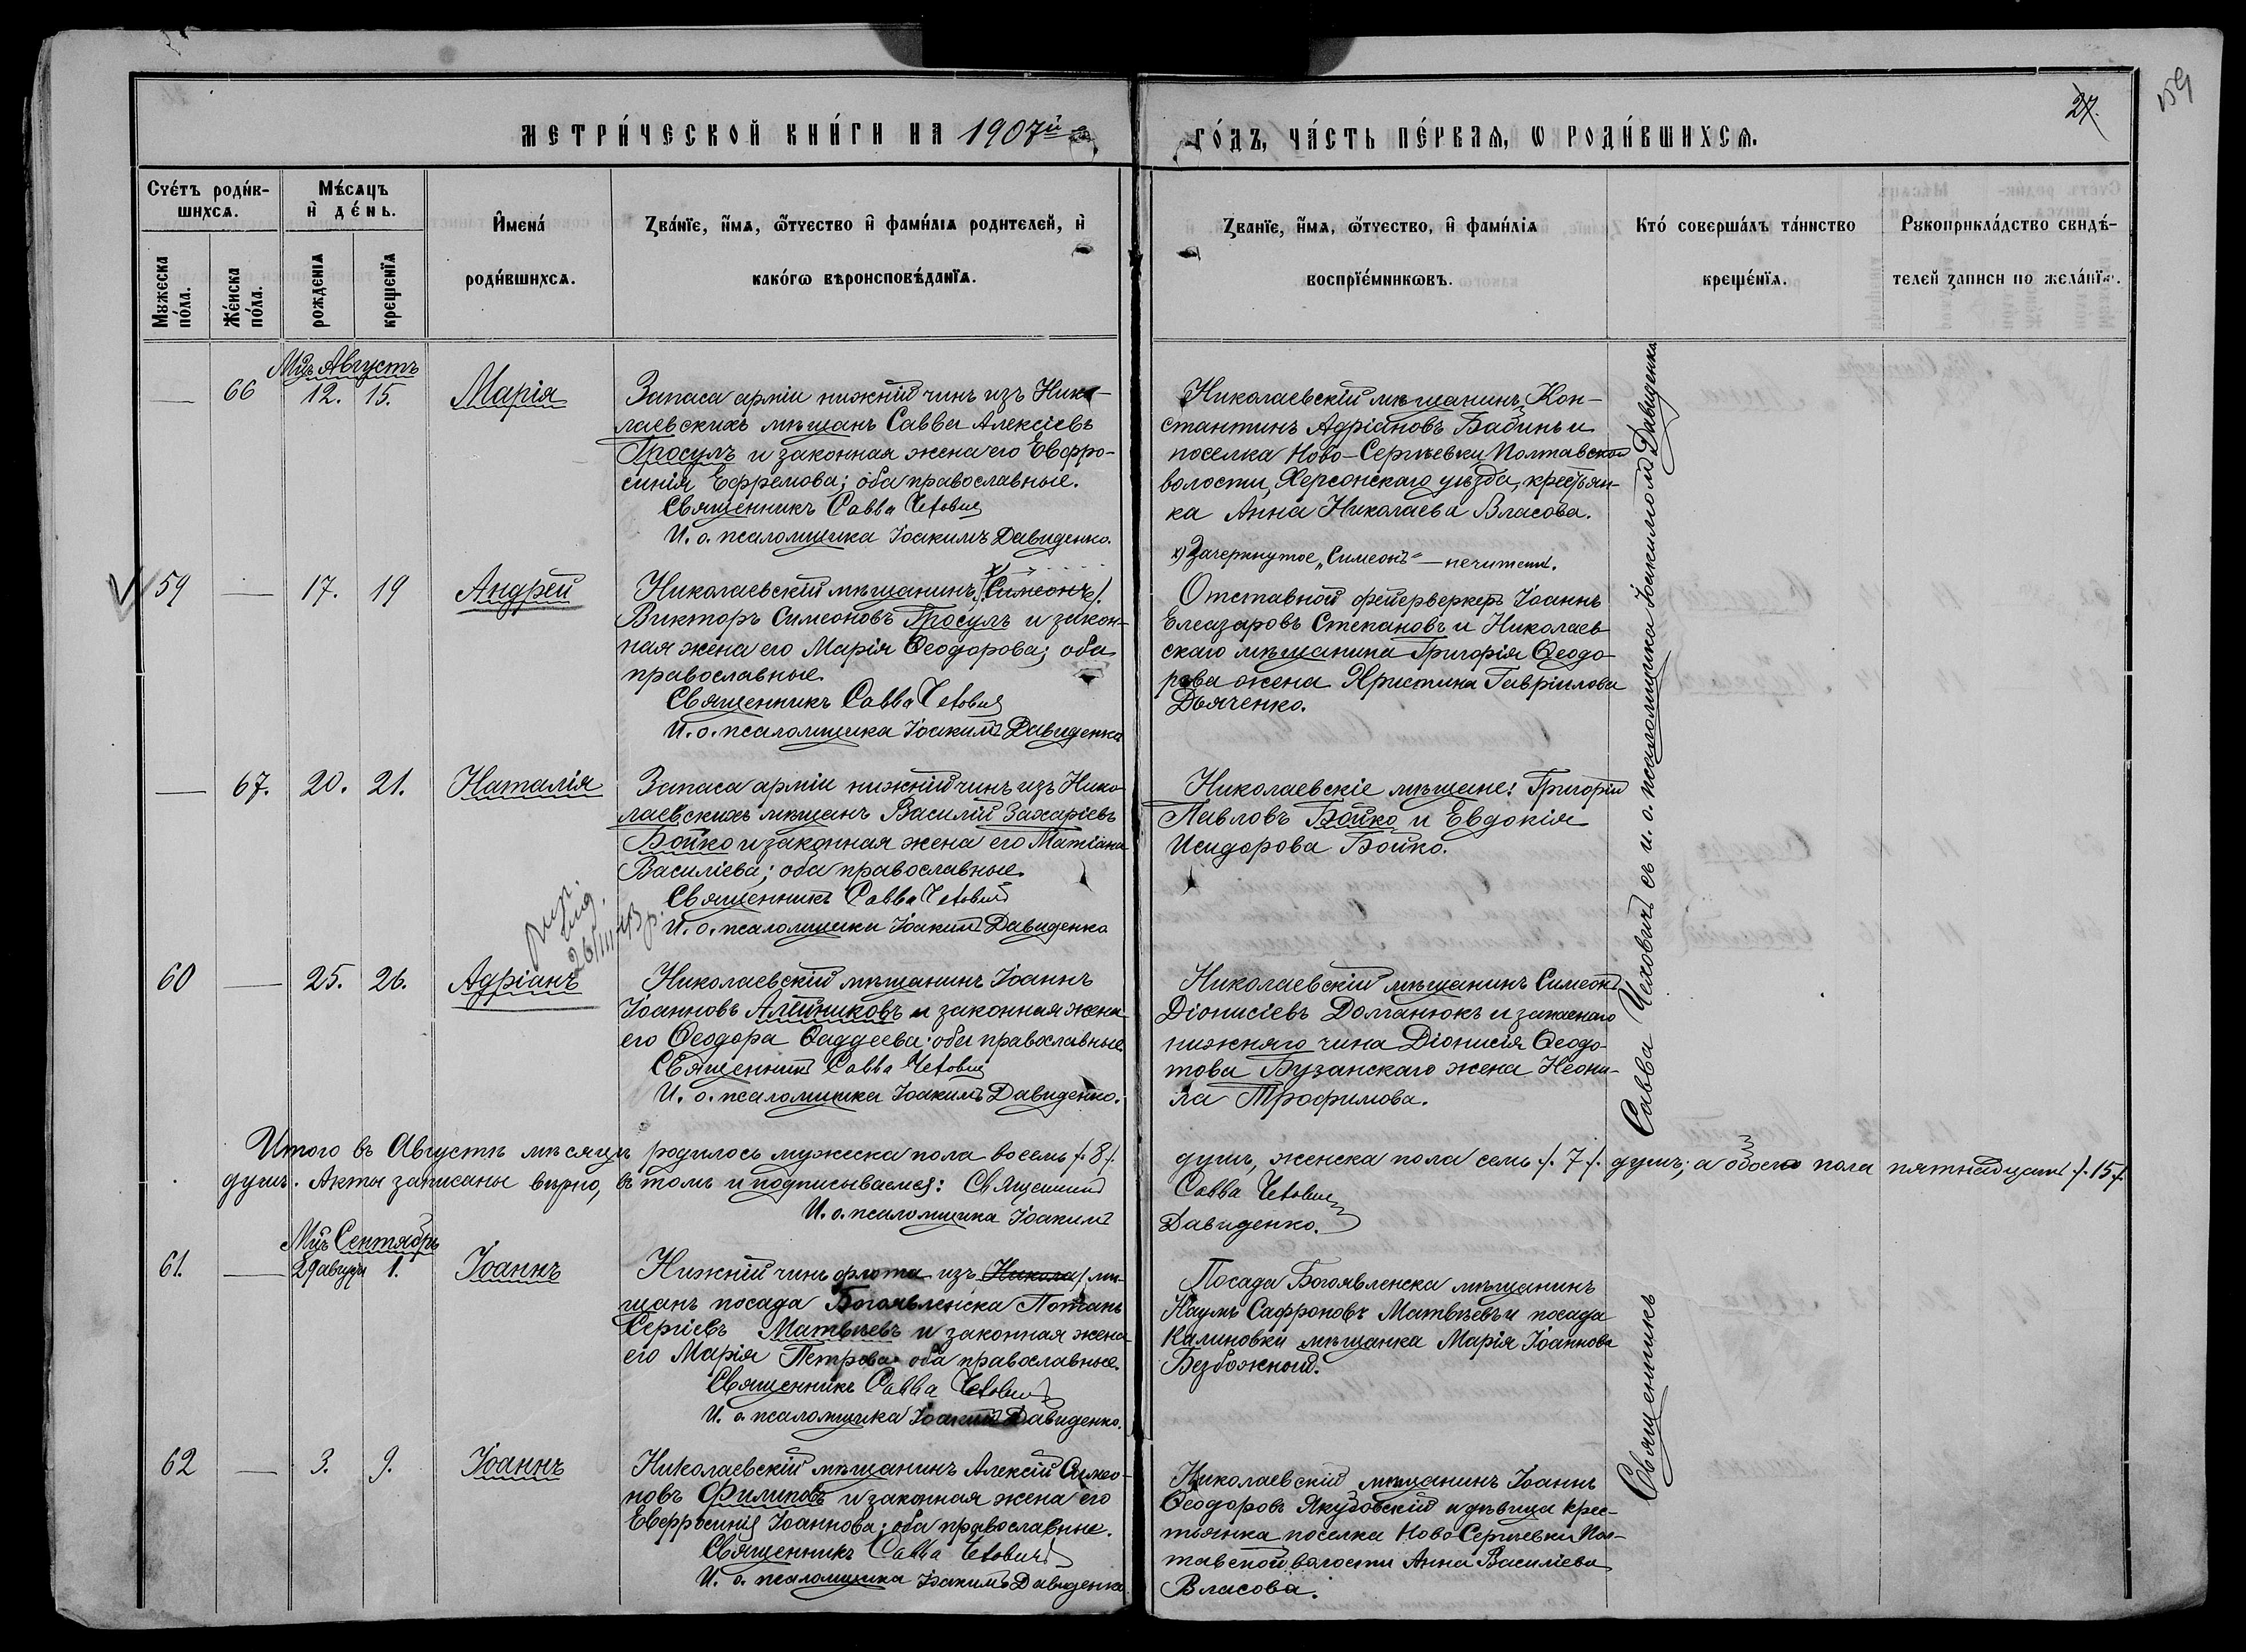 27.
159
МЕТРИ́ЧЕСКОЙ КНИ́ГИ НА 1907й
ГО́ДЪ, ЧА́СТЬ ПЕ́РВАЯ, Ѡ РОДИ́ВШИХСѦ.
Счетъ роди́в-
шихсѧ.
Мужеска
по́ла.
Же́нска
по́ла.
Мѣ́сяцъ
и҆ де́нь.
рожденїѧ
крещенїѧ
И҆мена́
роди́вшихсѧ.
Зва́нїе, и҆́мѧ, ѻ҆́тчество и҆ фами́лїѧ родителей, и҆
како́гѡ вѣроисповѣ́данїѧ.
Званїе, и҆́мѧ, ѻ҆́тчество, и҆ фами́лїѧ
воспрїе́мникѡвъ.
Кто́ соверша́лъ та́инство
креще́нїѧ.
Рукоприкла́дство свидѣ́-
телей записи по жела́нїю.
Мцъ Августъ
— 66 12. 15. Марія
Запаса арміи нижній чинъ изъ Нико-
лаевскихъ мѣщанъ Савва Алексіевъ
Гросулъ и законная жена его Евфро-
синія Ефремова; оба православные.
Священникъ Савва Чехович
И. о. псаломщика Іоакимъ Давиденко.
Николаевскій мѣщанинъ Кон-
стантинъ Адріановъ Бабинъ и
поселка Ново-Сергѣевки Полтавской
волости, Херсонскаго уѣзда, крестьян-
ка Анна Николаева Власова.
х) Зачеркнутое „Симеонъ" — нечитат.
59 — 17. 19 Андрей
Николаевскій мѣщанинъ х) (Симеонъ).
Викторъ Симеоновъ Гросулъ и закон-
ная жена его Марія Ѳеодорова; оба
православные.
Священникъ Савва Чехович
И. о. псаломщика Іоакимъ Давиденко
Отставной фейерверкеръ Іоаннъ
Елеазаровъ Степановъ и Николаев-
скаго мѣщанина Григорія Ѳеодо-
рова жена Христина Гавріилова
Дьяченко.
— 67. 20. 21. Наталія
Запаса арміи нижній чинъ изъ Нико-
лаевскихъ мѣщанъ Василій Захаріевъ
Бойко и законная жена его Татіана
Василіева; оба православные.
Священникъ Савва Чехович
И. о. псаломщика Іоакимъ Давиденко
Николаевскіе мѣщане: Григорій
Павловъ Бойко и Евдокія
Исидорова Бойко.
26/III 43 р.
60 — 25. 26. Адріанъ
Николаевскій мѣщанинъ Іоаннъ
Іоанновъ Алтиниковъ и законная жена
его Ѳеодора Ѳаддеева; оба православные
Священникъ Савва Чехович
И. о. псаломщика Іоакимъ Давиденко.
Николаевскій мѣщанинъ Симеонъ
Діонисіевъ Долганюкъ и запаснаго
нижняго чина Діонисія Ѳеодо-
това Бузанскаго жена Неони-
ла Трофимова.
Итого въ Августѣ мѣсяцѣ родилось мужеска пола восемь /. 8 /. душъ, женска пола семь /. 7 /. душъ; а обоего пола пятнадцать /. 15 /.
душъ. Акты записаны вѣрно, въ томъ и подписываемся: Священникъ Савва Чехович
И. о. псаломщика Іоакимъ Давиденко.
Мцъ Сентябрь
61. — 29 августа 1. Іоаннъ
Нижній чинъ флота изъ Никола/ мѣ-
щанъ посада Богоявленска Потапъ
Сергіевъ Матвѣевъ и законная жена
его Марія Петрова оба православные.
Священникъ Савва Чехович
И. о. псаломщика Іоакимъ Давиденко.
Посада Богоявленска мѣщанинъ
Наумъ Сафроновъ Матвѣевъ и посада
Калиновки мѣщанка Марія Іоаннова
Безбожной.
62 — 3. 9. Іоаннъ
Николаевскій мѣщанинъ Алексій Симео-
новъ Филиповъ и законная жена его
Евфросинія Іоаннова; оба православные.
Священникъ Савва Чехович
И. о. псаломщика Іоакимъ Давиденко
Николаевскій мѣщанинъ Іоаннъ
Ѳеодоровъ Якубовскій и дѣвица крес-
тьянка поселка Ново-Сергіевки Пол-
тавской волости Анна Василіева
Власова.
Священникъ Савва Чеховичъ съ и. о. псаломщика Іоакимомъ Давиденко